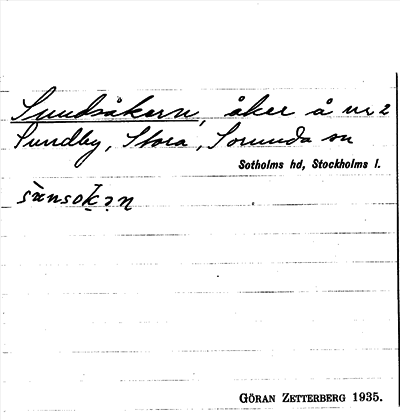 Sundsåkern, åker å nr 2
Sundby, Stora, Sorunda sn
Sotholms hd, Stockholms l.
sànsok̬ən
GÖRAN ZETTERBERG 1935.